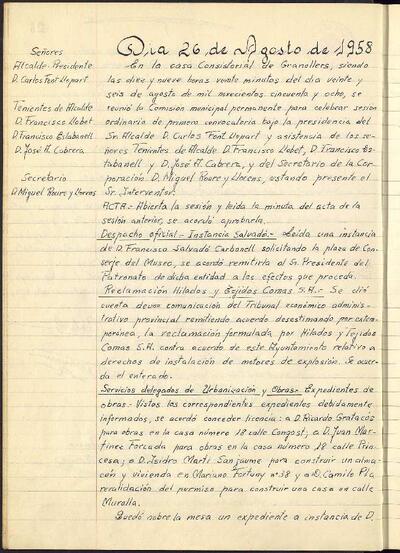 Señores
Alcalde-Presidente
D. Carlos Font Llopart
Tenientes de Alcalde
D. Francisco Llobet
D. Francisco Estabanell
D. José A. Cabrera
Secretario
D. Miguel Roure y Llorens
Dia 26 de Agosto de 1958
En la casa Consistorial de Granollers, siendo
las diez y nueve horas veinte minutos del dia veinte y
seis de agosto de mil novecientos cincuenta y ocho, se
reunió la Comision municipal permanente para celebrar sesion
ordinaria de primera convocatoria bajo la presidencia del
Sr. Alcalde D. Carlos Font Llopart y asistencia de los se-
ñores Tenientes de Alcalde D. Francisco Llobet, D. Francisco Es-
tabanell y D. José A. Cabrera, y del Secretario de la Cor-
poración D. Miguel Roure y Llorens, estando presente el
Sr. Interventor.
ACTA.- Abierta la sesión y leida la minuta del acta de la
sesión anterior, se acordó aprobarla.
Despacho oficial.- Instancia Salvadó.- Leida una instancia
de D. Francisco Salvadó Carbonell solicitando la plaza de Con-
serje del Museo, se acordó remitirla al Sr. Presidente del
Patronato de dicha entidad a los efectos que proceda.
Reclamación Hilados y Tejidos Comas S.A.- Se dió
cuenta de una comunicación del Tribunal económico adminis-
trativo provincial remitiendo acuerdo desestimando por extem-
poránea, la reclamación formulada por Hilados y Tejidos
Comas S.A. contra acuerdo de este Ayuntamiento relativo a
derechos de instalación de motores de explosión. Se acor-
da el enterado.
Servicios delegados de Urbanización y Obras.- Expedientes de
obras.- Vistos los correspondientes expedientes debidamente
informados, se acordó conceder licencia: a D. Ricardo Gratacós
para obras en la casa número 18 calle Congost; a D. Juan Mar-
tinez Forcada para obras en la casa número 18 calle Prin-
cesa; a D. Isidro Marti Sanjaume para construir un alma-
cén y vivienda en Mariano Fortuny nº 38 y a D. Camilo Pla
revalidación del permiso para construir una casa en calle
Muralla.
Quedó sobre la mesa un expediente a instancia de D.